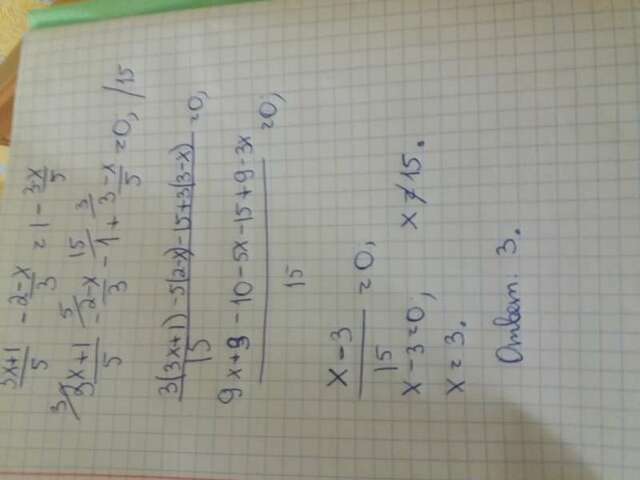 3x+1/5 - 2-x/3 = 1 - 3-x/5
3/ 3x+1/5 - 5/ 2-x/3 - 15/ 1 + 3/ 3-x/5 = 0; /15
3(3x+1) -5(2-x)-15+3(3-x)/15 = 0;
9x+9 -10-5x-15+9-3x/15 = 0;
x-3/15 = 0;
x-3=0; x≠15.
x=3.
Ответ. 3.